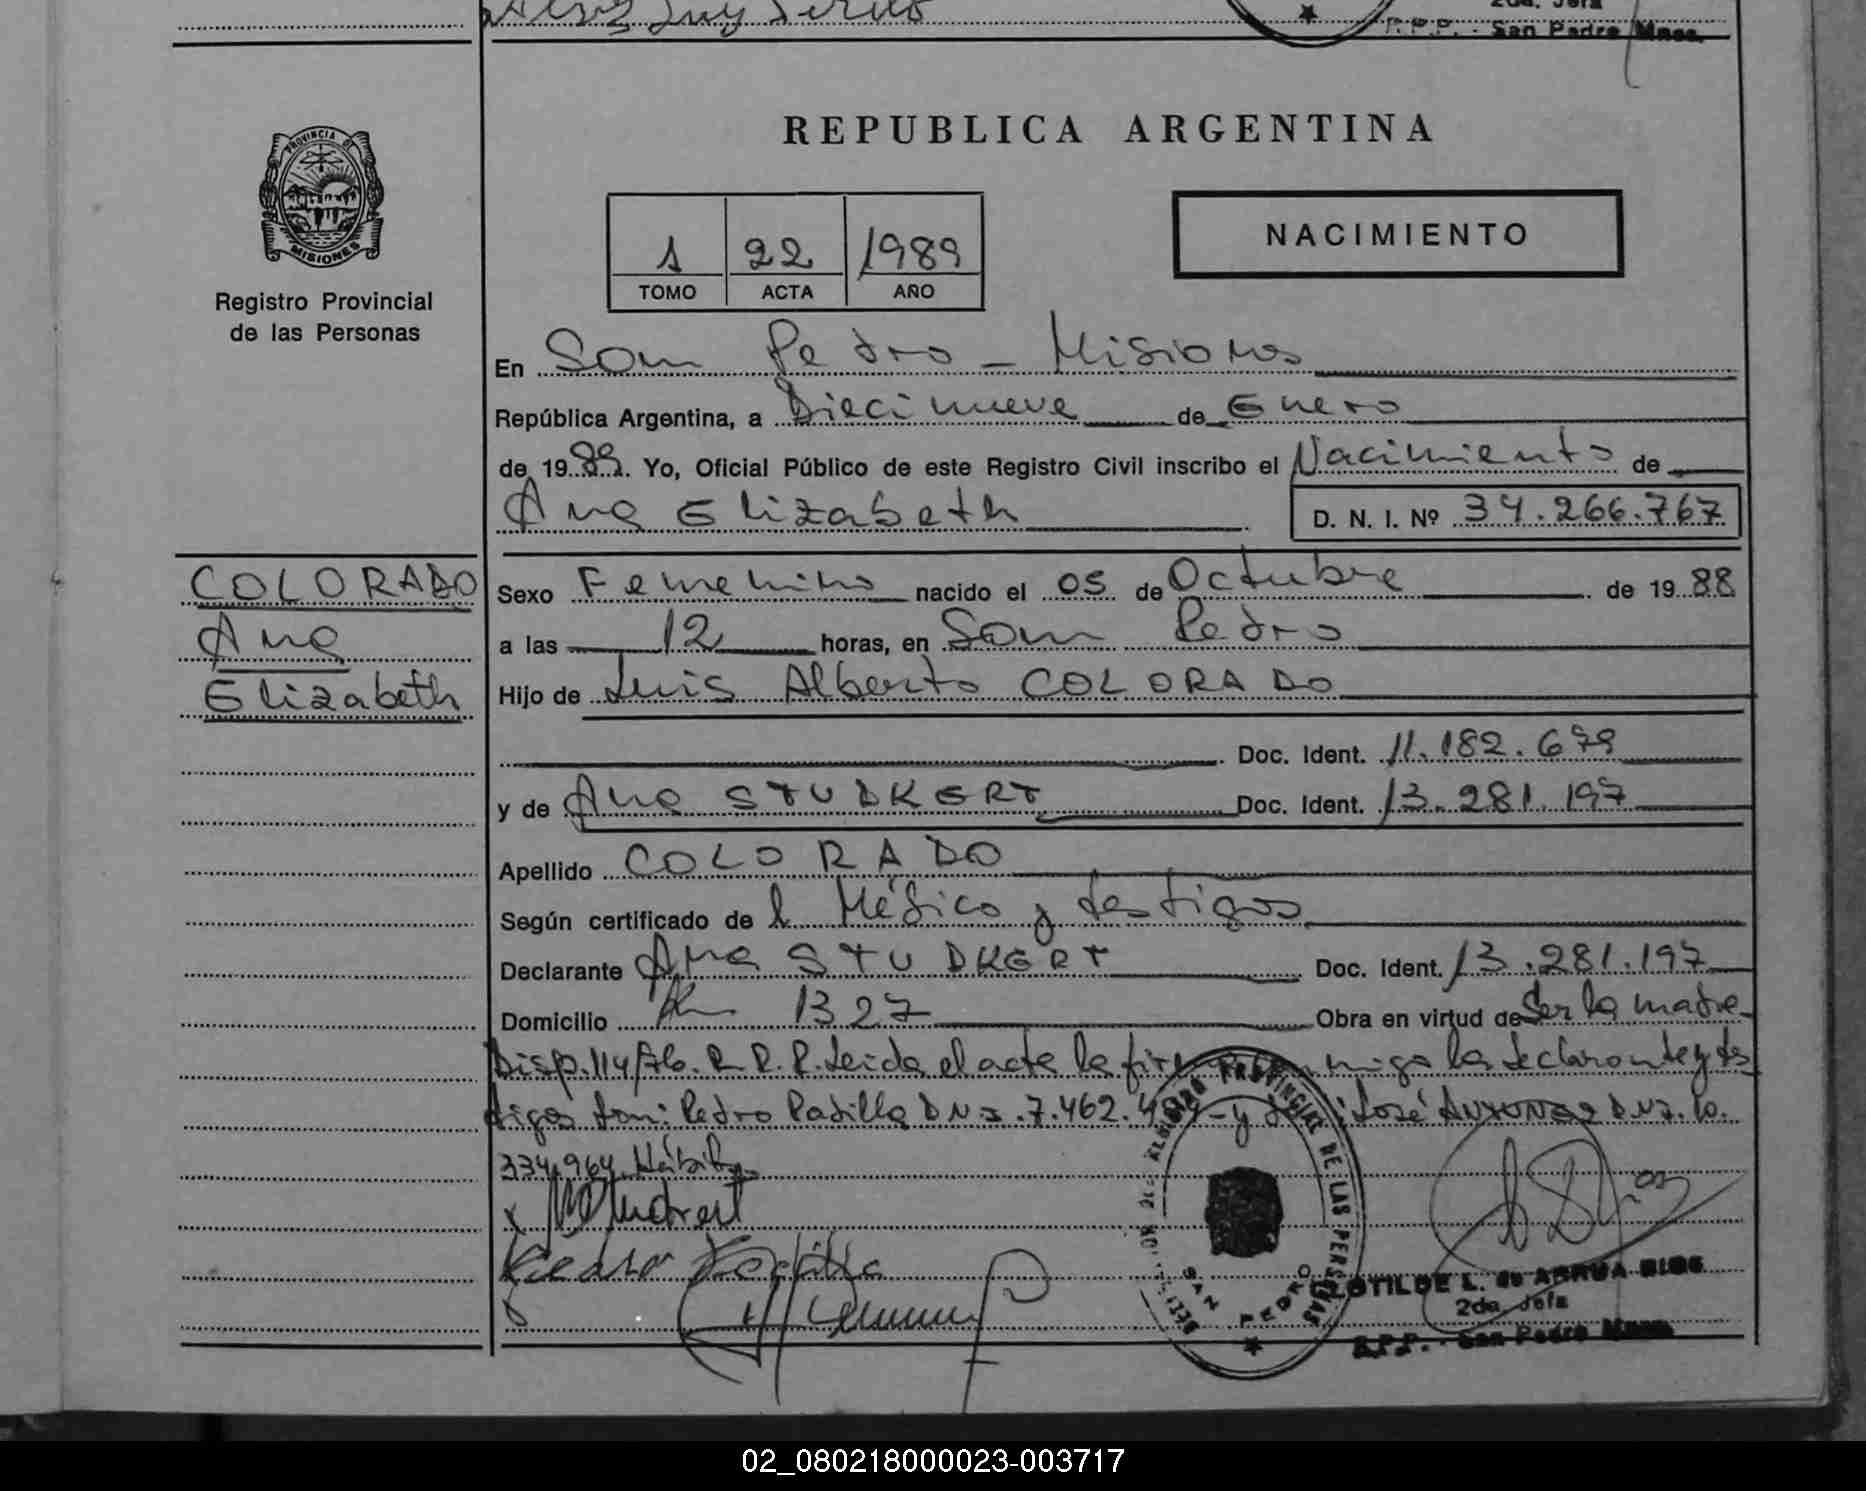 2da. Jefa
R.P.P. - San Pedro Mnes.
PROVINCIA DE
MISIONES
Registro Provincial
de las Personas
REPUBLICA ARGENTINA
1 22 1989
TOMO ACTA AÑO
NACIMIENTO
En San Pedro - Misiones
República Argentina, a Diecinueve de Enero
de 1989. Yo, Oficial Público de este Registro Civil inscribo el Nacimiento de
Ana Elizabeth
D. N. I. Nº 34.266.767
COLORADO
Ana
Elizabeth
Sexo Femenino nacido el 05 de Octubre de 1988
a las 12 horas, en San Pedro
Hijo de Luis Alberto COLORADO
Doc. Ident. 11.182.679
y de Ana STUDKERT Doc. Ident. 13.281.197
Apellido COLORADO
Según certificado de l Médico y testigos
Declarante Ana STUDKERT Doc. Ident. 13.281.197
Domicilio Km 1327 Obra en virtud de Ser la madre
Disp. 114/76. R.P.P. Leida el acta la firma conmigo la declarante y tes
tigos Don: Pedro Padilla DNI. 7.462. y José ANTUNEZ DNI. 10.
334.964. Hábil
Pedro Padilla
REGISTRO PROVINCIAL DE LAS PERSONAS
SAN PEDRO
CLOTILDE L. de ABRUA RIOS
2da. Jefa
R.P.P. - San Pedro Mnes.
02_080218000023-003717